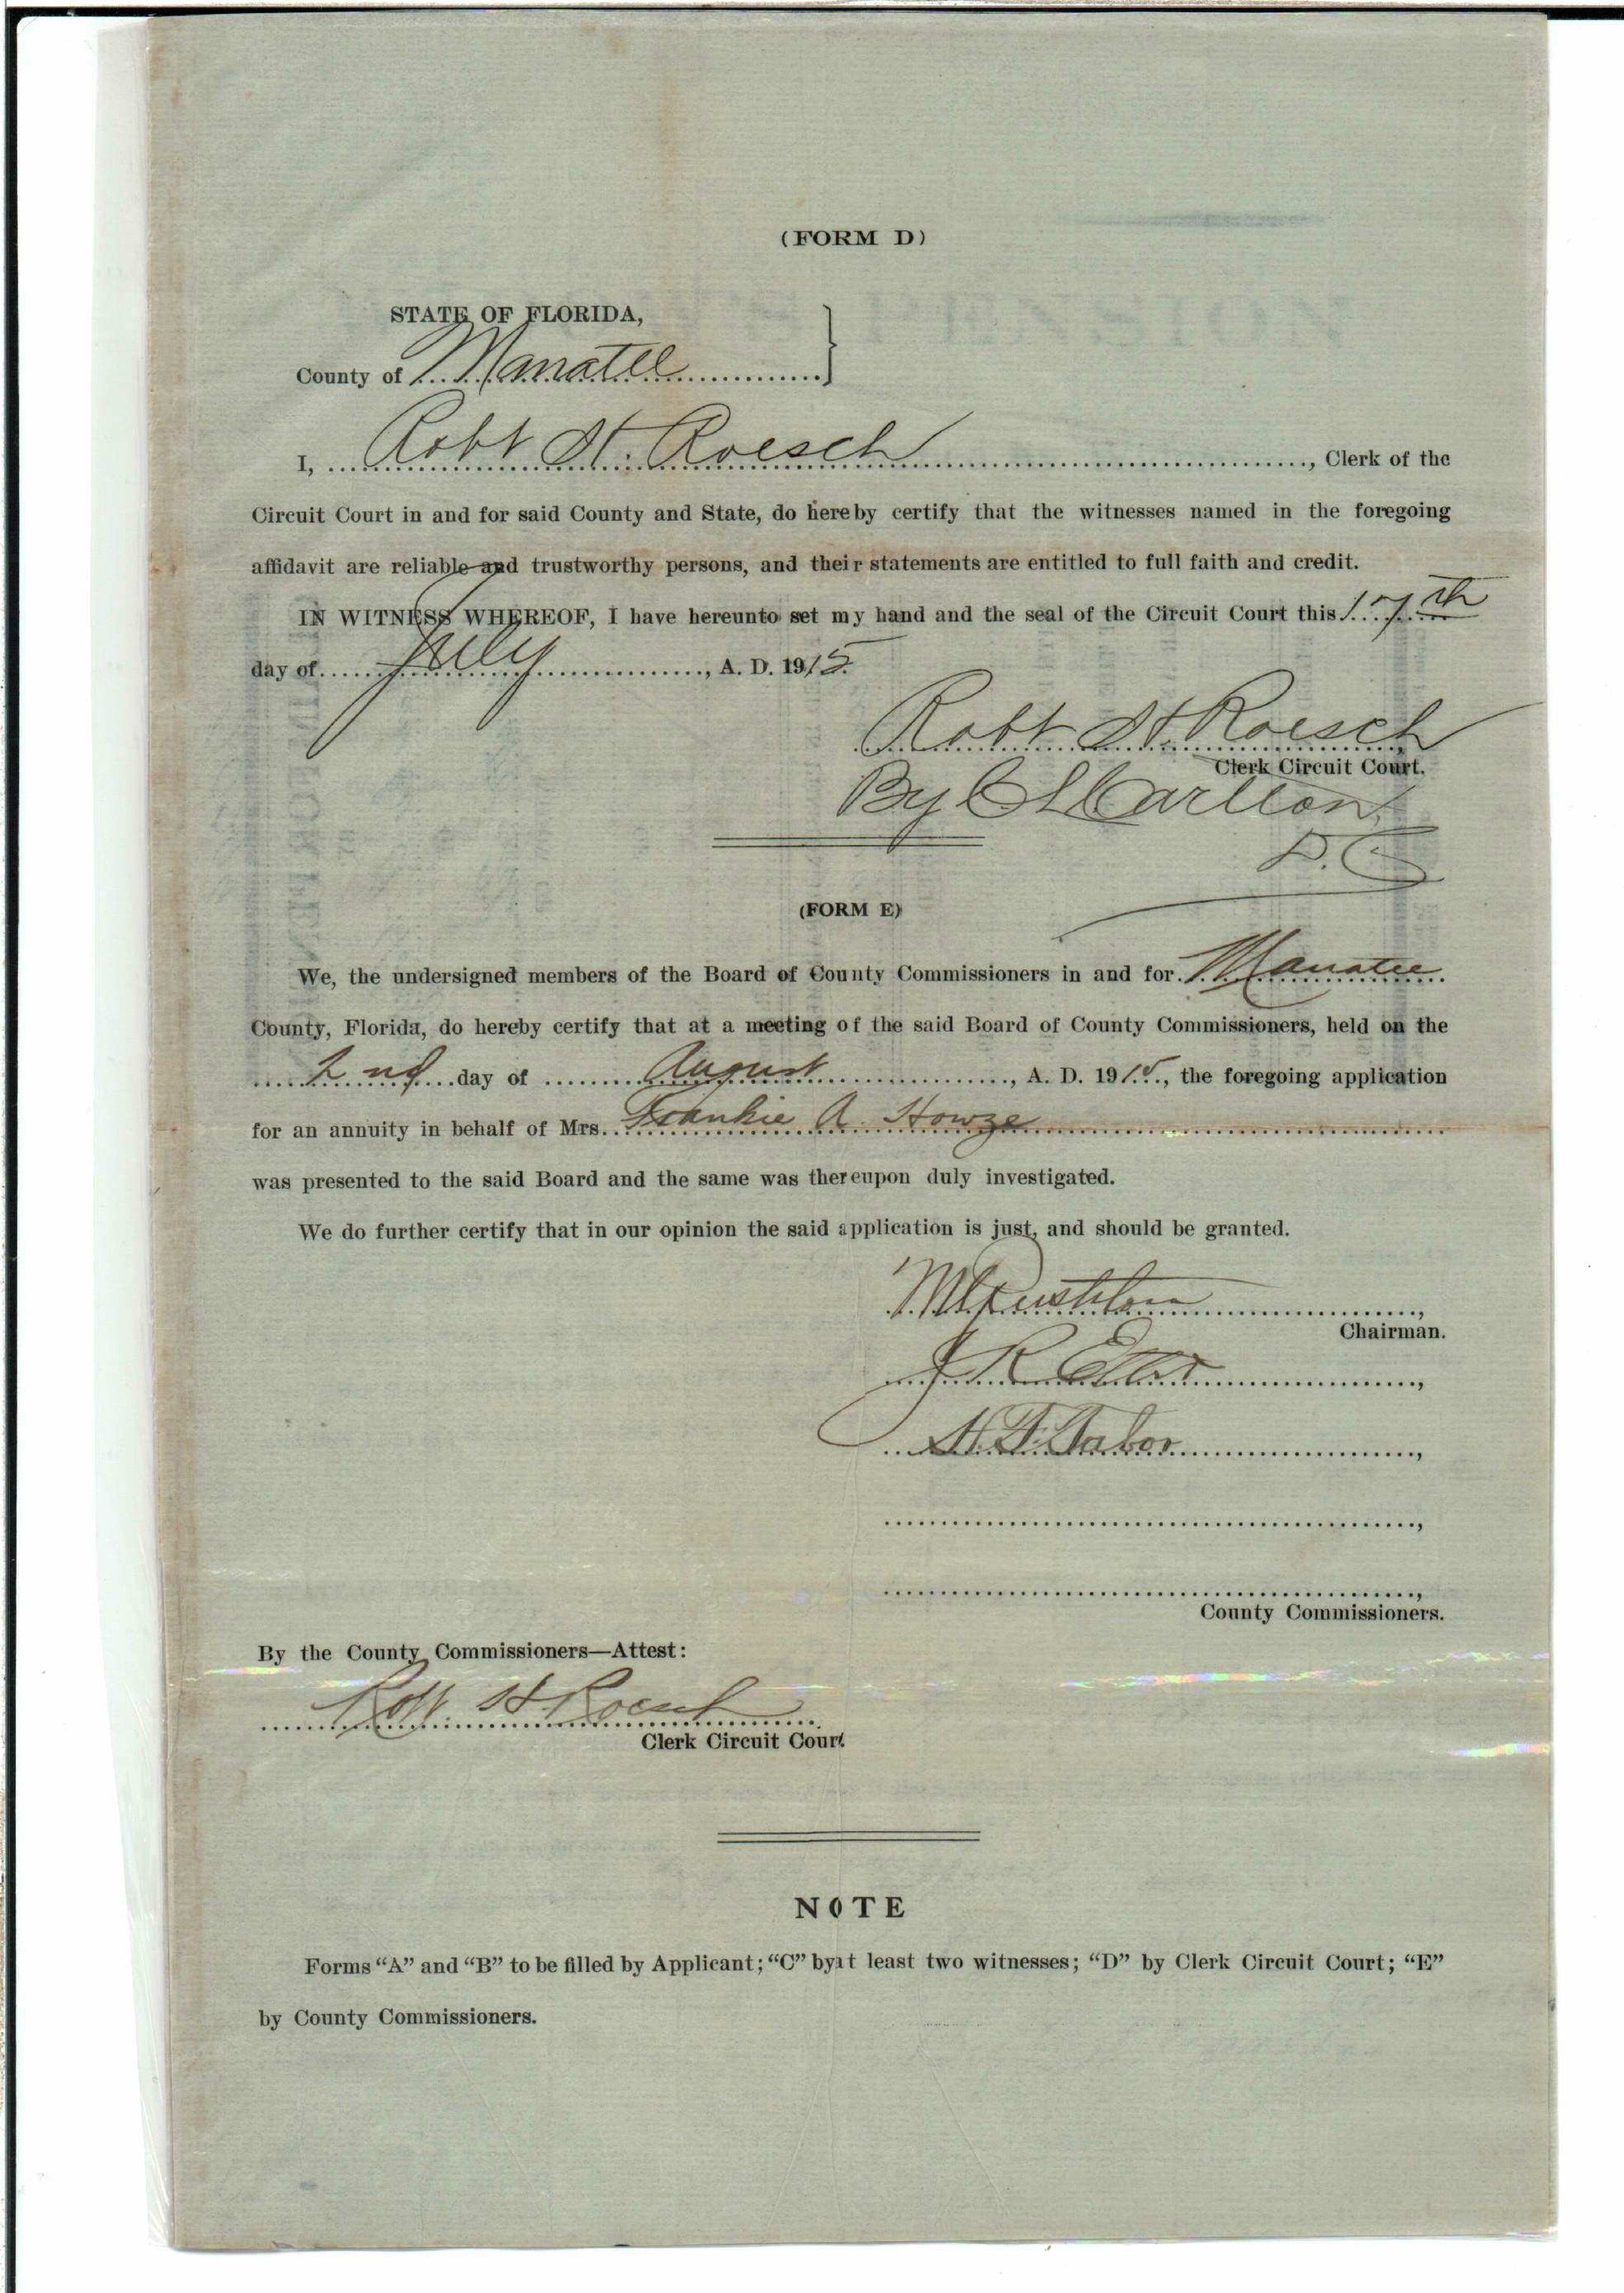 (FORM D)
STATE OF FLORIDA,
County of Manatee
I, Robt H. Roesch, Clerk of the
Circuit Court in and for said County and State, do hereby certify that the witnesses named in the foregoing
affidavit are reliable and trustworthy persons, and their statements are entitled to full faith and credit.
IN WITNESS WHEREOF, I have hereunto set my hand and the seal of the Circuit Court this 17th
day of July, A. D. 1915.
Robt H Roesch
Clerk Circuit Court.
By Carlton
D.C.
(FORM E)
We, the undersigned members of the Board of County Commissioners in and for Manatee
County, Florida, do hereby certify that at a meeting of the said Board of County Commissioners, held on the
2nd day of August, A. D. 1915, the foregoing application
for an annuity in behalf of Mrs. Frankie A. Howze
was presented to the said Board and the same was thereupon duly investigated.
We do further certify that in our opinion the said application is just, and should be granted.
Chairman.
J. R.
Tabor
County Commissioners.
By the County Commissioners—Attest:
Robt H Roesch
Clerk Circuit Court
NOTE
Forms "A" and "B" to be filled by Applicant; "C" by at least two witnesses; "D" by Clerk Circuit Court; "E"
by County Commissioners.